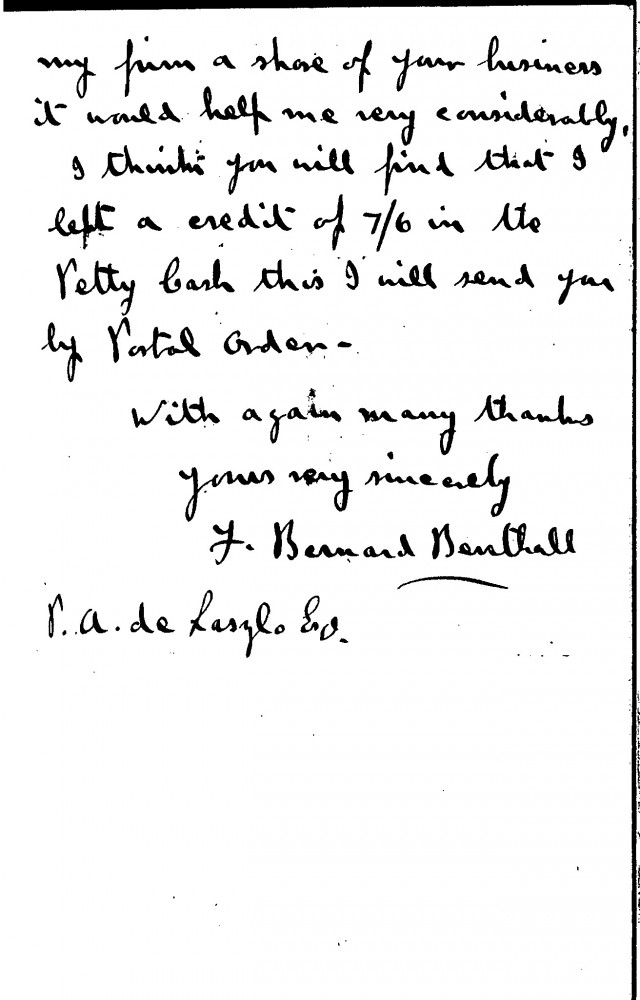 my firm a share of your business
it would help me very considerably,
I think you will find that I
left a credit of 7/6 in the
Petty Cash this I will send you
by Postal Order -
With again many thanks
yours very sincerely
F. Bernard Benthall
P. A. de Laszlo Esq.